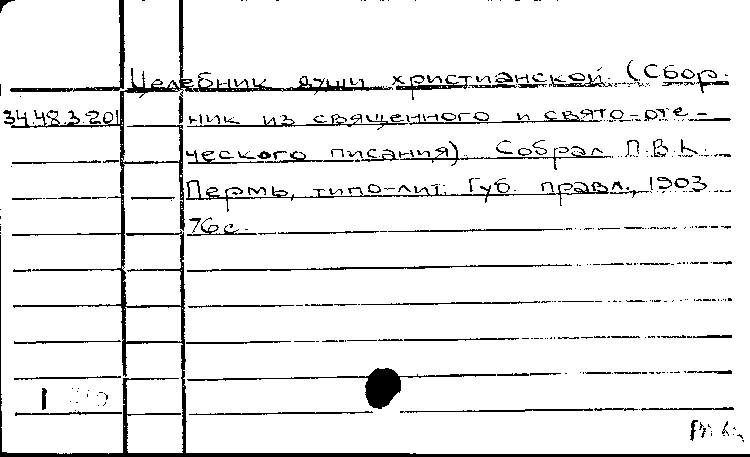 Целебник души христианской. (Сбор-
34.48.3.201 ник из священного и свято-оте-
ческого писания). Собрал П.В.К.
Пермь, типо-лит. Губ. правл., 1903
76 с.